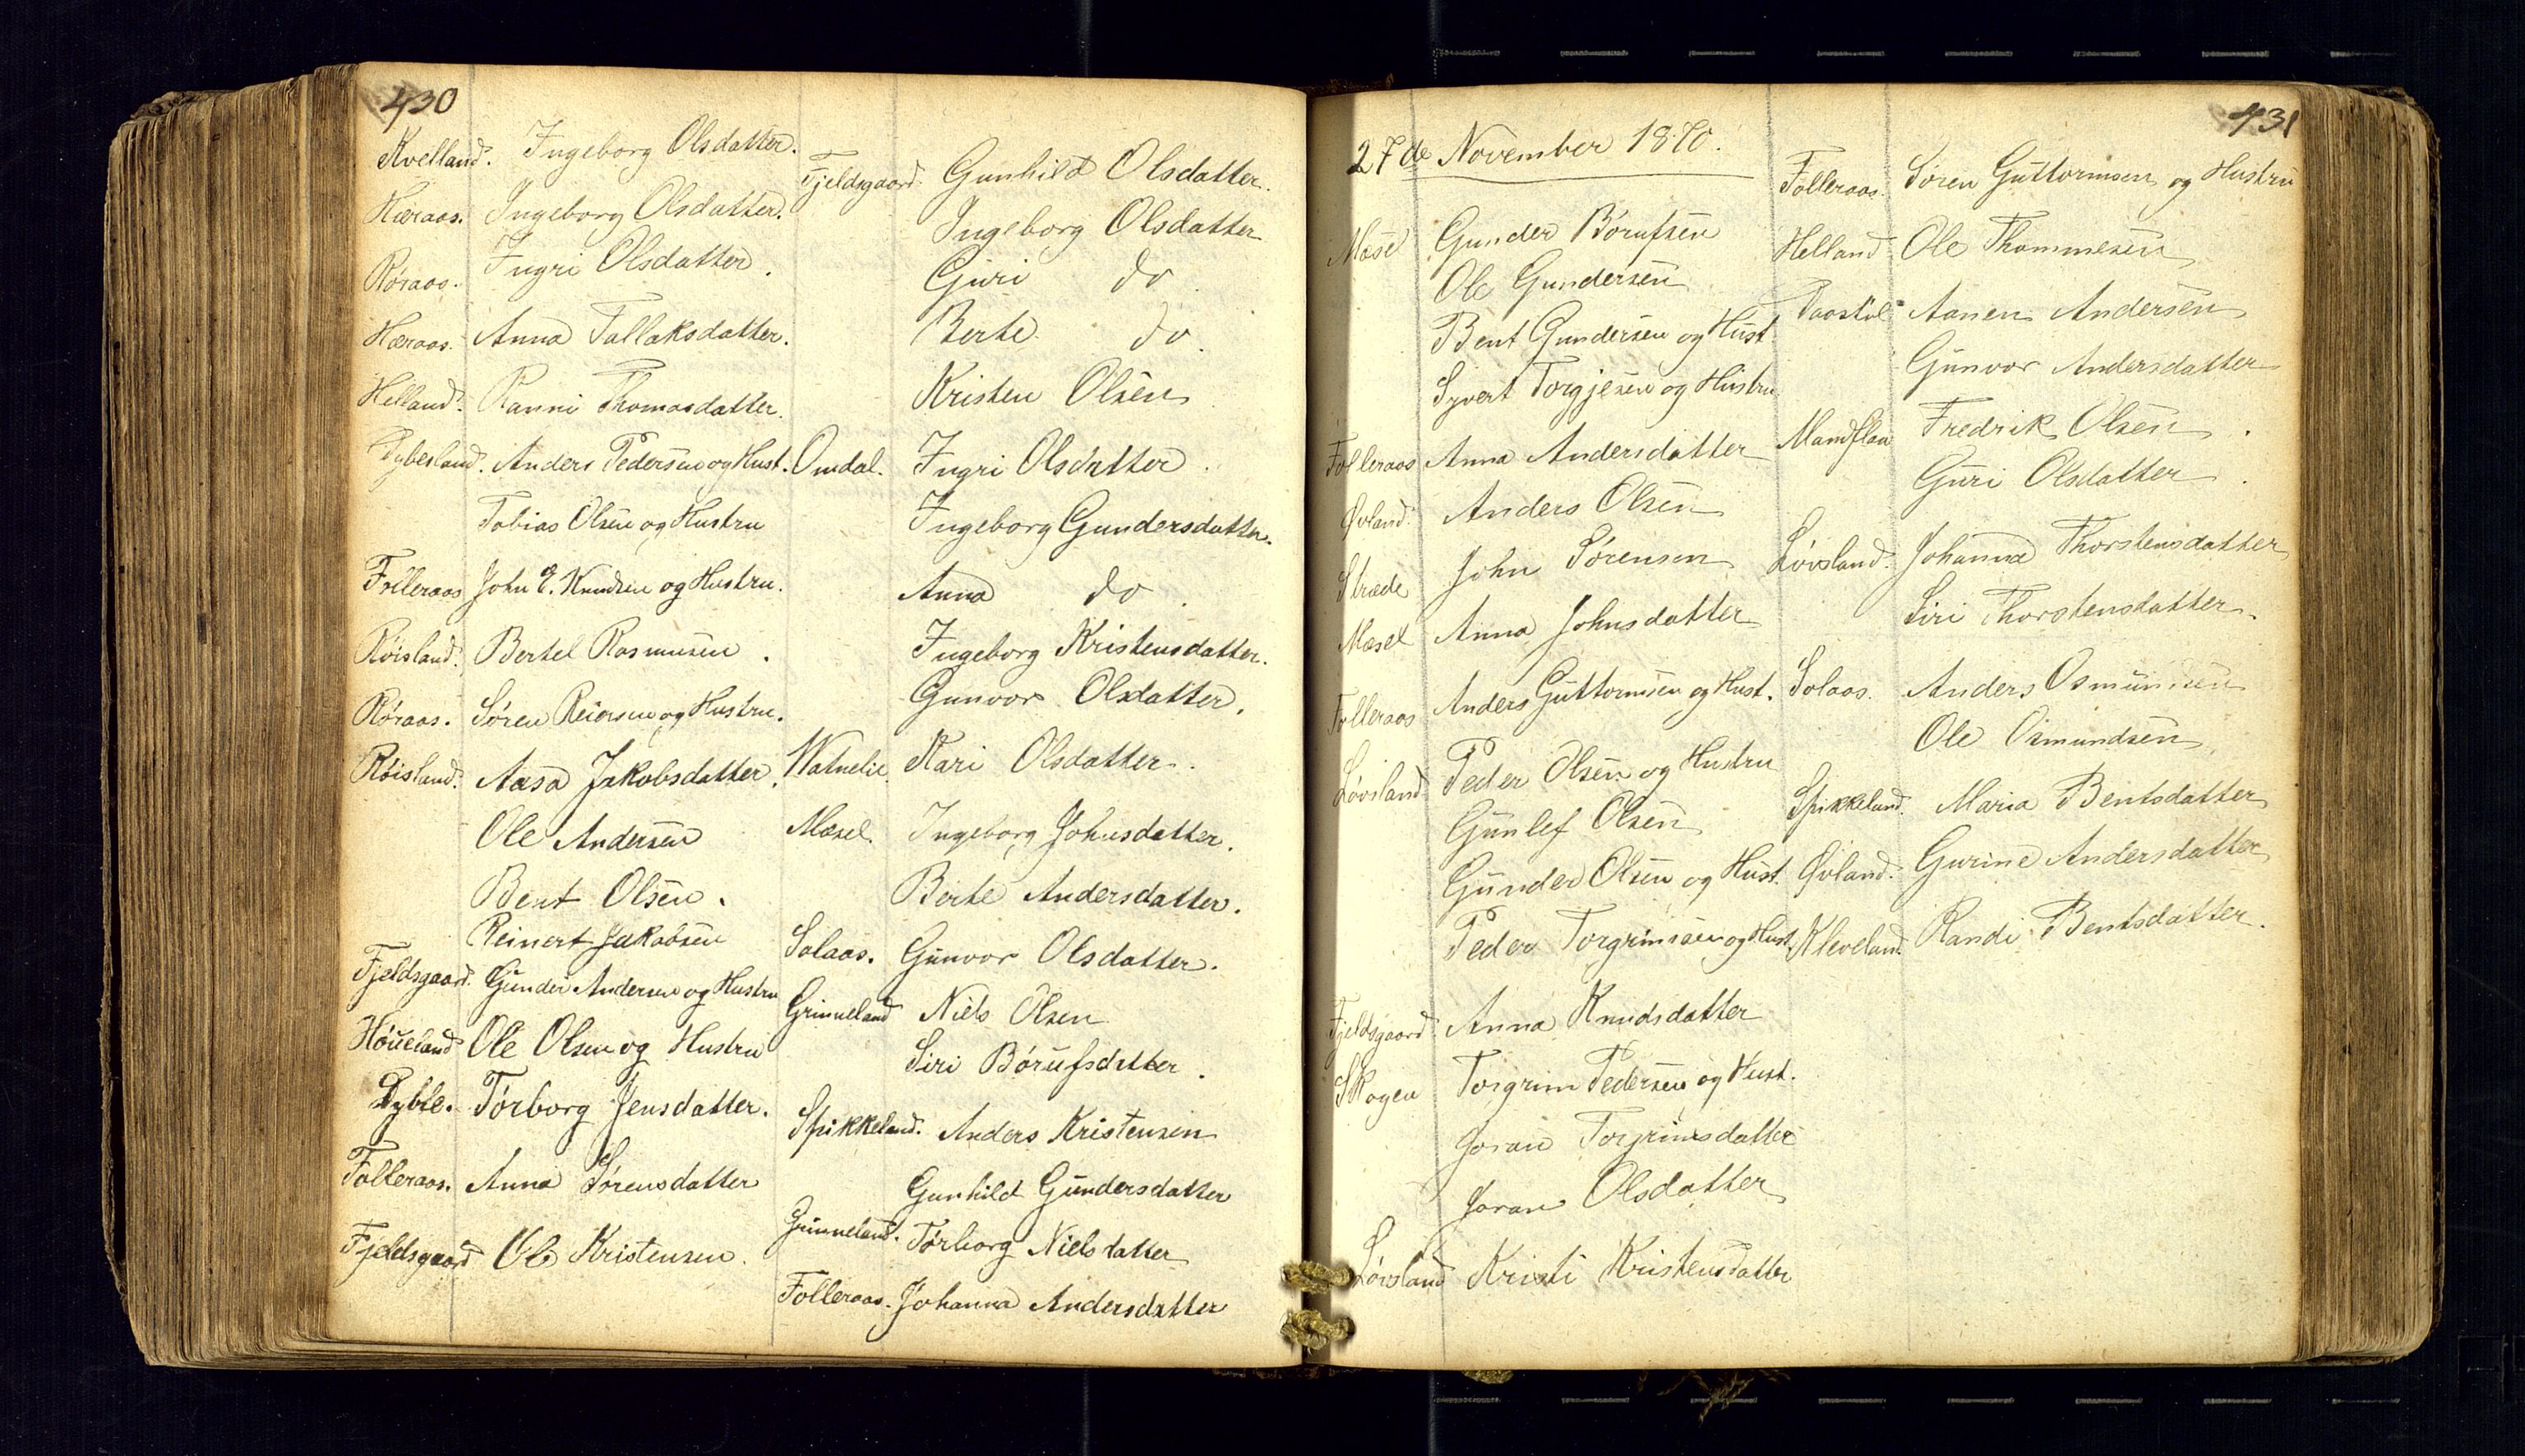 430
Kvelland. Ingeborg Olsdatter.
Hæraas. Ingeborg Olsdatter.
Røraas. Ingri Olsdatter.
Hæraas. Anna Tallaksdatter.
Helland. Ranni Thomasdatter.
Dybesland. Anders Pedersen og Hust.
Tobias Olsen og Hustru
Folleraas John E. Knudsen og Hustru.
Røisland. Bertel Rasmusen.
Røraas. Søren Reiersen og Hustru.
Røisland. Aasa Jakobsdatter.
Ole Andersen
Bent Olsen.
Reinert Jakobsen
Fjeldsgaard. Gunder Andersen og Hustru
Høueland Ole Olsen og Hustru
Dyble. Torborg Jensdatter.
Folleraas. Anna Sørensdatter
Fjeldsgaard Ole Kristensen.
Fjeldsgaard. Gunhild Olsdatter.
Ingeborg Olsdatter
Guri do.
Berte do.
Kristen Olsen
Omdal. Ingri Olsdatter.
Ingeborg Gundersdatter.
Anna do.
Ingeborg Kristensdatter.
Gunvor Olsdatter.
Watnelie. Kari Olsdatter.
Mæsel. Ingeborg Johnsdatter.
Berte Andersdatter.
Solaas. Gunvor Olsdatter.
Grinneland Niels Olsen
Siri Børufsdatter.
Spikkeland. Anders Kristensen
Gunhild Gundersdatter
Grinneland. Torborg Nielsdatter
Folleraas. Johanna Andersdatter
431
27de November 1870.
Mæsel Gunder Børufsen
Ole Gundersen
Bent Gundersen og Hust
Syvert Torgjesen og Hustru
Folleraas Anna Andersdatter
Øvland. Anders Olsen
Stræde John Sørensen
Mæsel Anna Johnsdatter
Folleraas Anders Guttormsen og Hust.
Løvsland Peder Olsen og Hustru
Gunlef Olsen
Gunder Olsen og Hust.
Peder Torgrimsen og Hust.
Fjeldsgaard. Anna Knudsdatter
Skogen Torgrim Pedersen og Hust.
Joran Torgrimsdatter
Joran Olsdatter
Løvsland Kristi Kristensdatter
Folleraas. Søren Guttormsen og Hustru
Helland Ole Thommesen
Aanen Andersen
Gunvor Andersdatter
Mandflaa Fredrik Olsen.
Guri Olsdatter.
Løvsland. Johanna Thorstensdatter
Siri Thorstensdatter.
Solaas. Anders Osmundsen
Ole Osmundsen
Spikkeland. Maria Bentsdatter
Øvland. Gurine Andersdatter
Kleveland. Randi Bentsdatter.